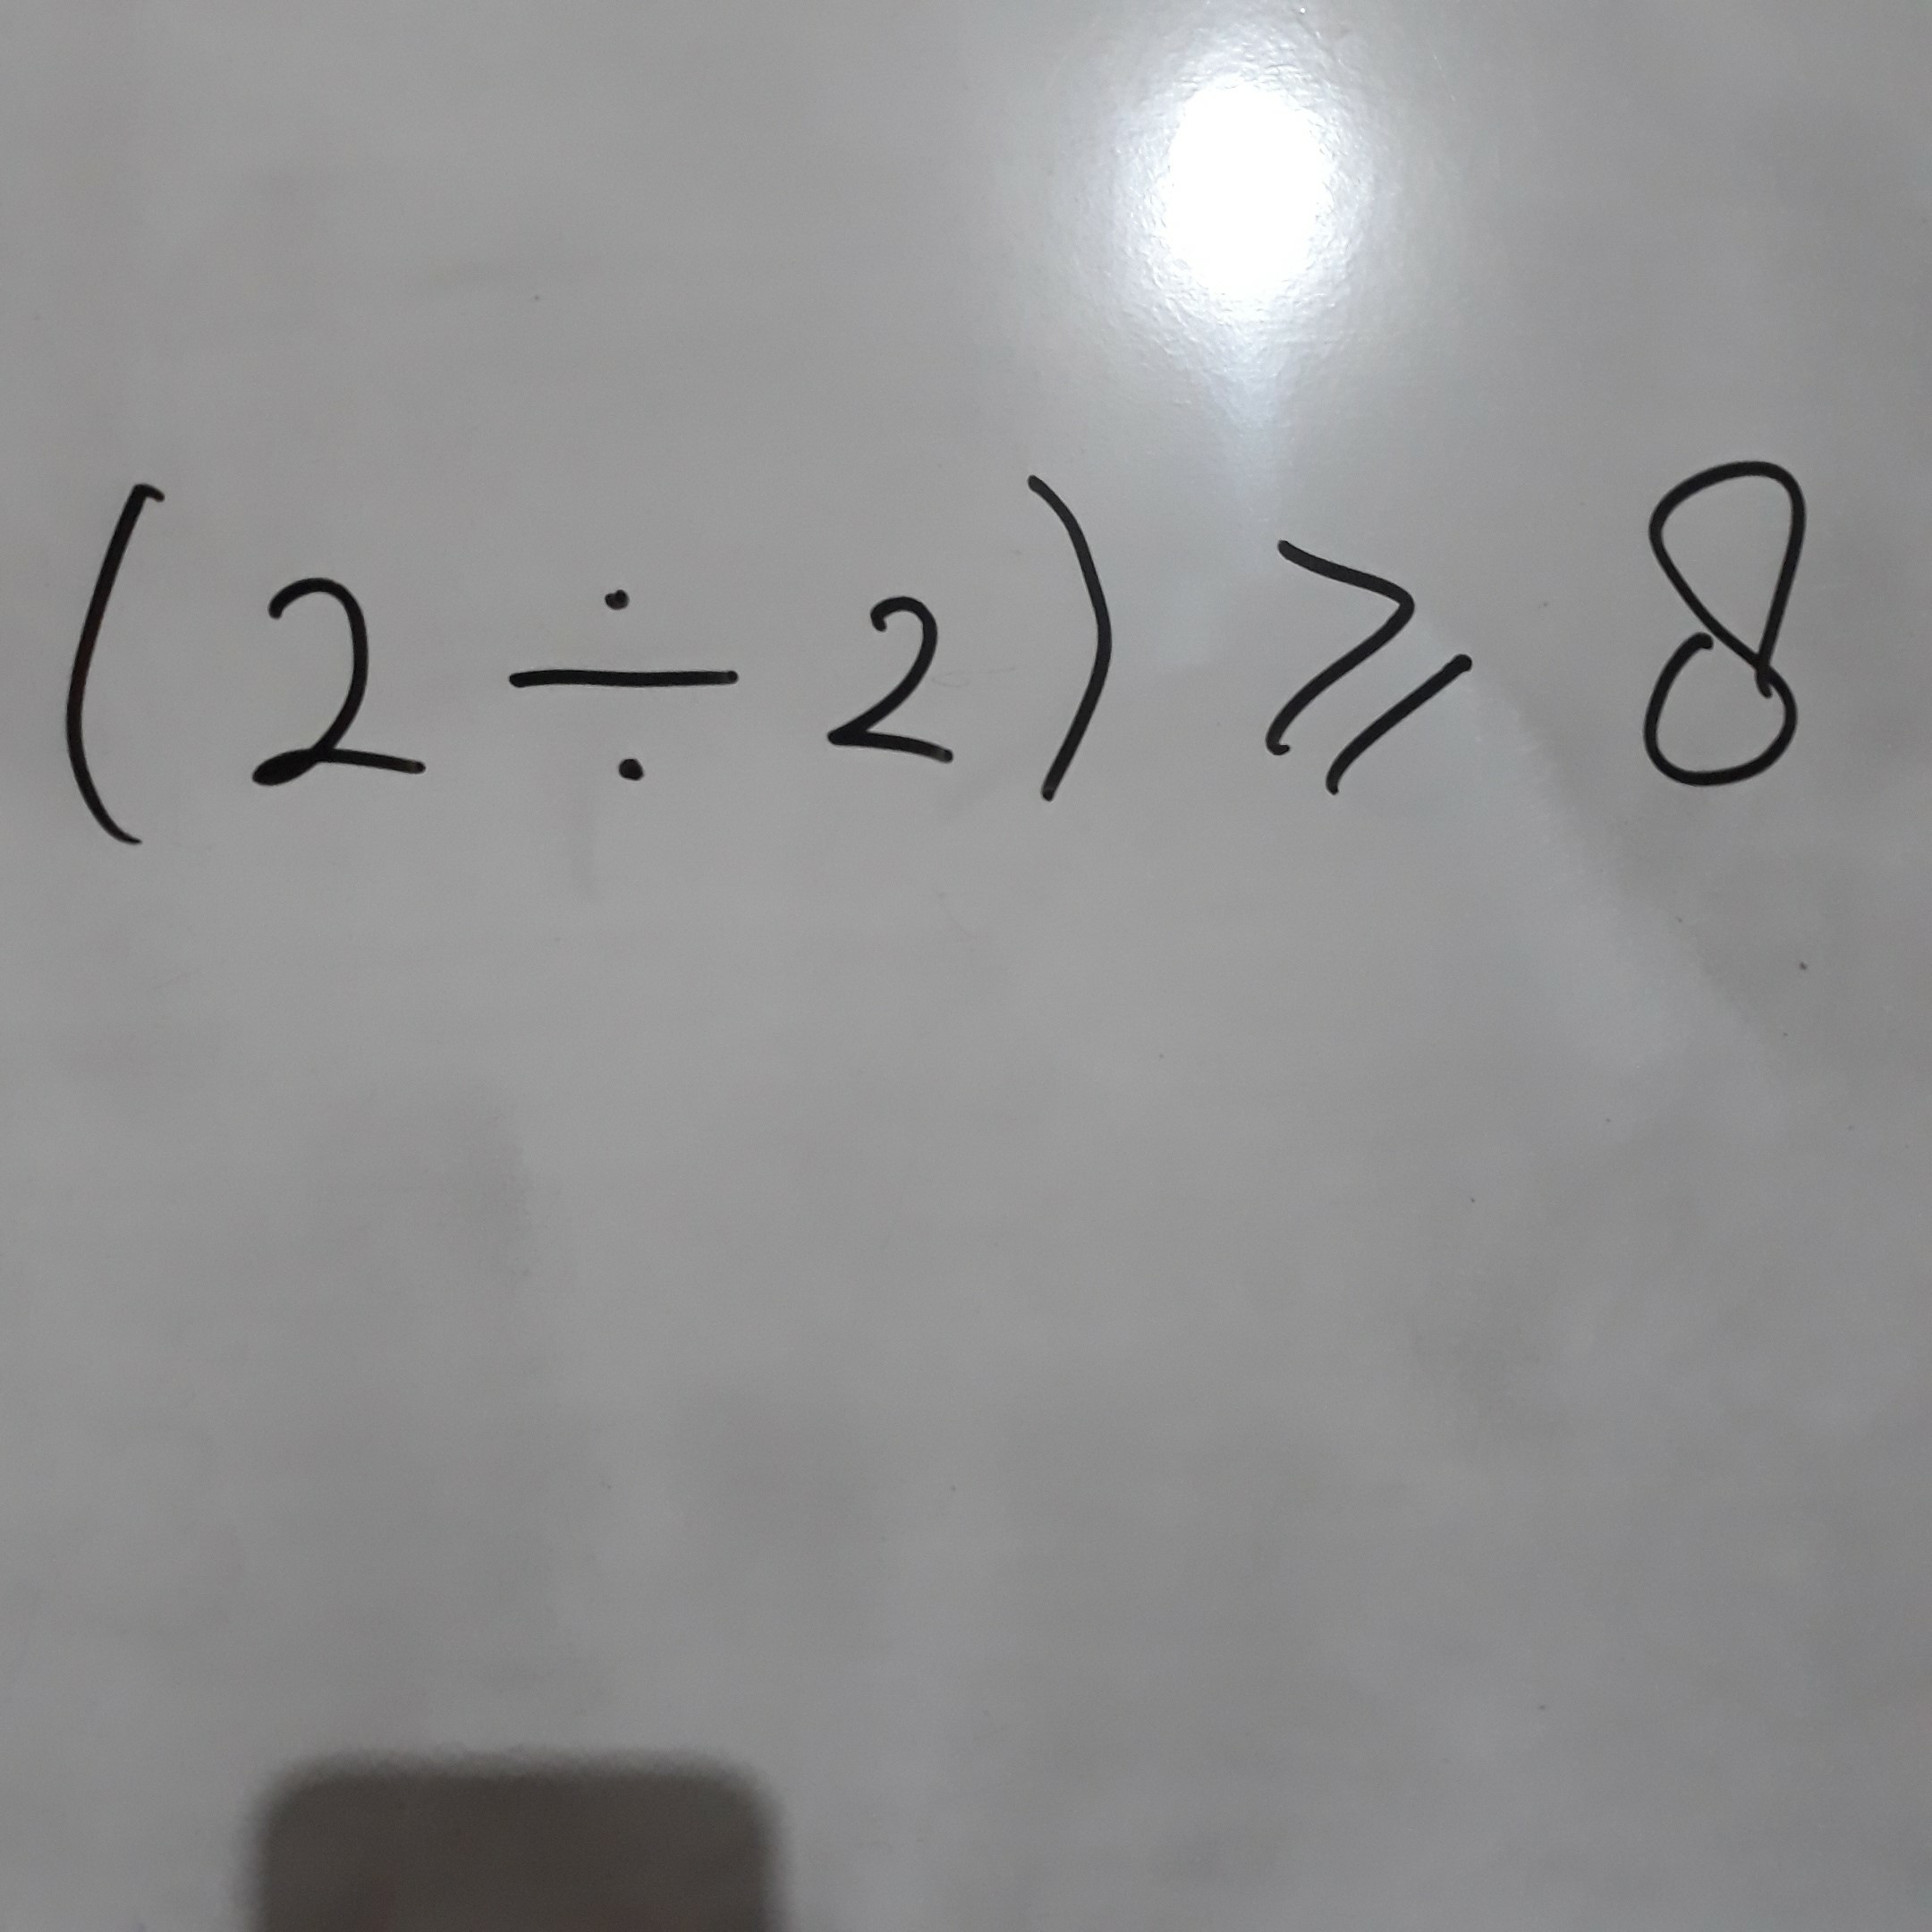 (2 ÷ 2) ⩾ 8